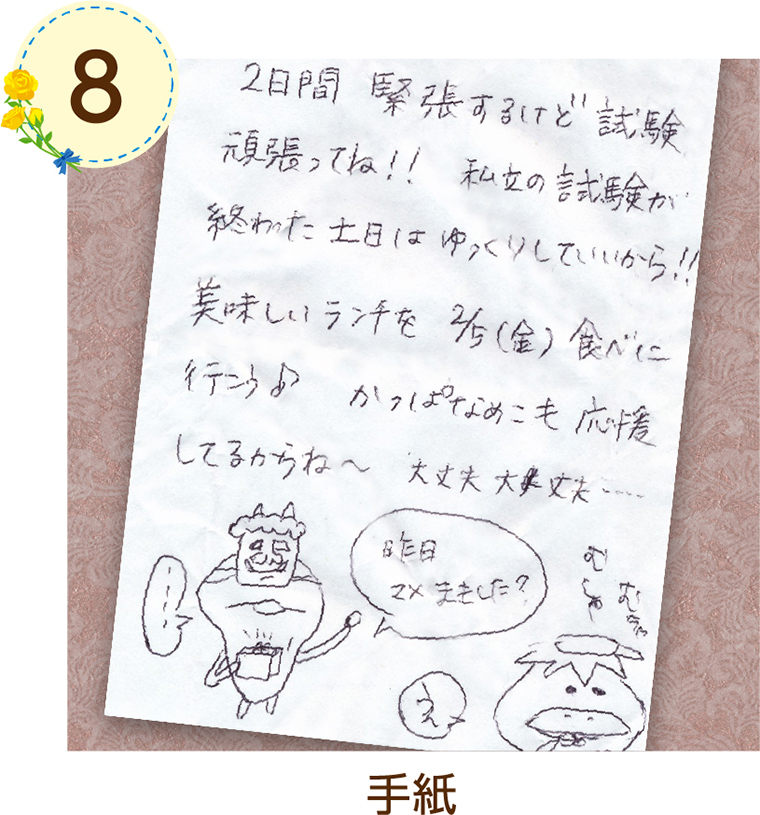 8
2日間 緊張するけど 試験
頑張ってね!! 私立の試験が
終わった土日はゆっくりしていいから!!
美味しいランチを 2/5(金) 食べに
行こう♪ かっぱなめこも応援
してるからね〜 大丈夫 大丈夫‥‥
昨日
マメまきした?
むしゃ
むしゃ
え
手紙